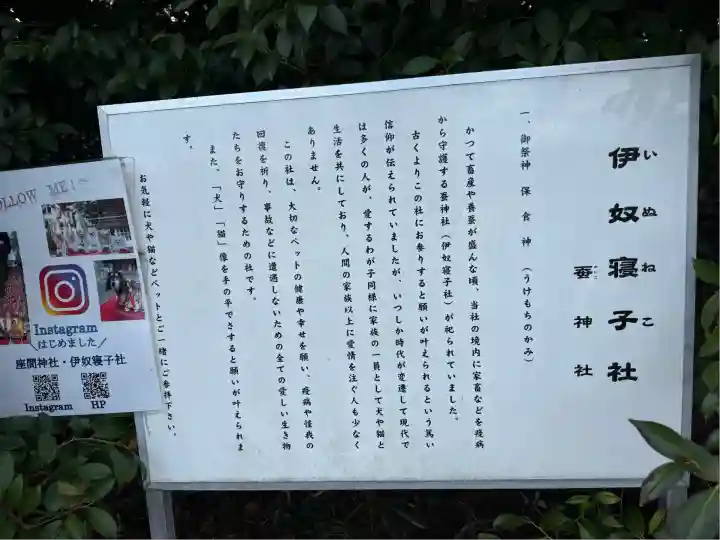 伊奴寝子社
いぬねこ
蚕神社
一、御祭神 保食神 (うけもちのかみ)
かつて畜産や養蚕が盛んな頃、当社の境内に家畜などを疫病
から守護する蚕神社(伊奴寝子社)が祀られていました。
古くよりこの社にお参りすると願いが叶えられるという篤い
信仰が伝えられていましたが、いつしか時代が変遷して現代で
は多くの人が、愛するわが子同様に家族の一員として犬や猫と
生活を共にしており、人間の家族以上に愛情を注ぐ人も少なく
ありません。
この社は、大切なペットの健康や幸せを願い、疫病や怪我の
回復を祈り、事故などに遭遇しないための全ての愛しい生き物
たちをお守りするための社です。
また、「犬」「猫」像を手の平でさすると願いが叶えられま
す。
お気軽に犬や猫などペットとご一緒にご参拝下さい。
FOLLOW ME!
Instagram
はじめました
座間神社・伊奴寝子社
Instagram HP